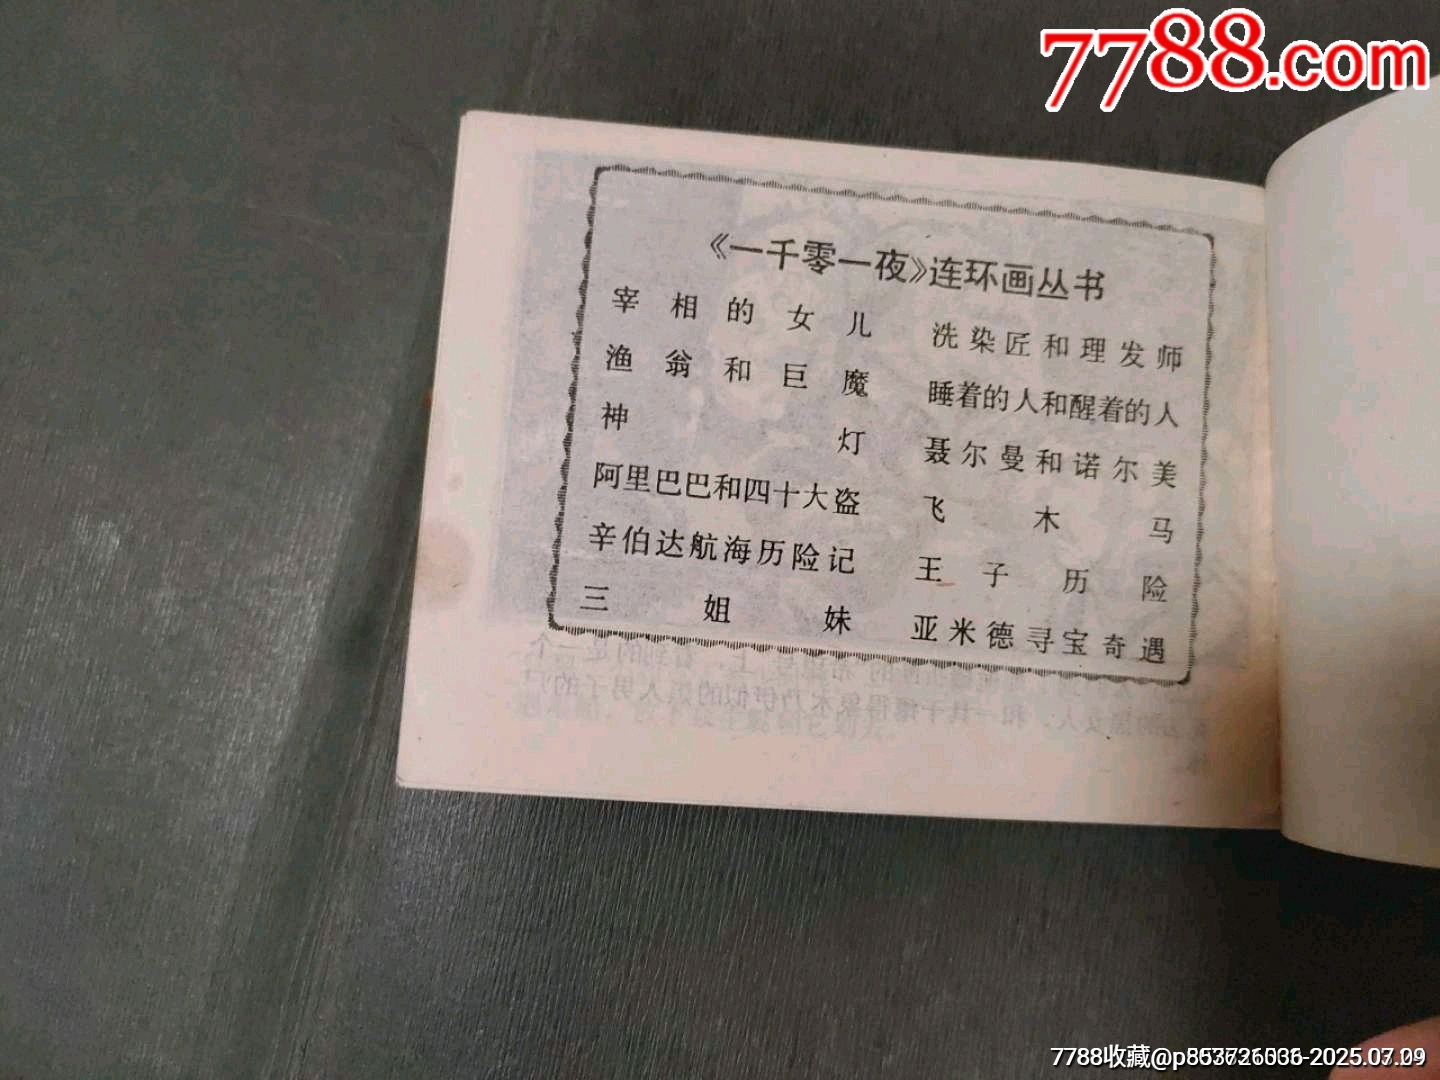 7788.com
《一千零一夜》连环画丛书
宰相的女儿
渔翁和巨魔
神灯
阿里巴巴和四十大盗
辛伯达航海历险记
三姐妹
洗染匠和理发师
睡着的人和醒着的人
聂尔曼和诺尔美
飞木马
王子历险
亚米德寻宝奇遇
7788收藏@p853726036-2025.07.09